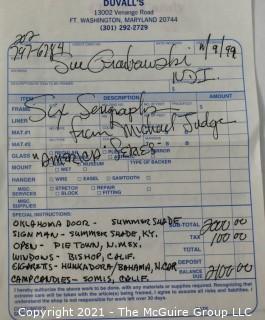 DUVALL'S
13002 Venango Road
FT. WASHINGTON, MARYLAND 20744
(301) 292-2729
202
11/9/99
N.D.I.
ITEM DESCRIPTION AMOUNT
FRAME
Six Serigraphs
LINER
MAT. #1
from Michael Judge
MAT. #2
GLASS
MUSEUM TYPE OF BACKER
MOUNT
HANGER WIRE EASEL SAWTOOTH
MISC. SERVICES STRETCH REPAIR
BLOCK FITTING
MISC. CHARGES
SPECIAL INSTRUCTIONS:
OKLAHOMA DOOR - SUMMER SHADE
SIGN MAN - SUMMER SHADE, KY.
OPEN - PIE TOWN, N.MEX.
WINDOWS - BISHOP, CALIF.
CIGARETS - HUNKADORA/BAHAMA, N.CAR
CAMP CANDIES - SOMIS, CALIF.
SUB-TOTAL 2000.00
TAX 100.00
TOTAL
DEPOSIT
BALANCE DUE 2100.00
I hereby authorize the above work to be done, with any materials or supplies required. Recognizing that
extreme care will be taken with the articles being framed, I agree to assume all risks and liabilities. I
understand the shop is not responsible for work left over 30 days.
Copyright 2021 - The McGuire Group LLC